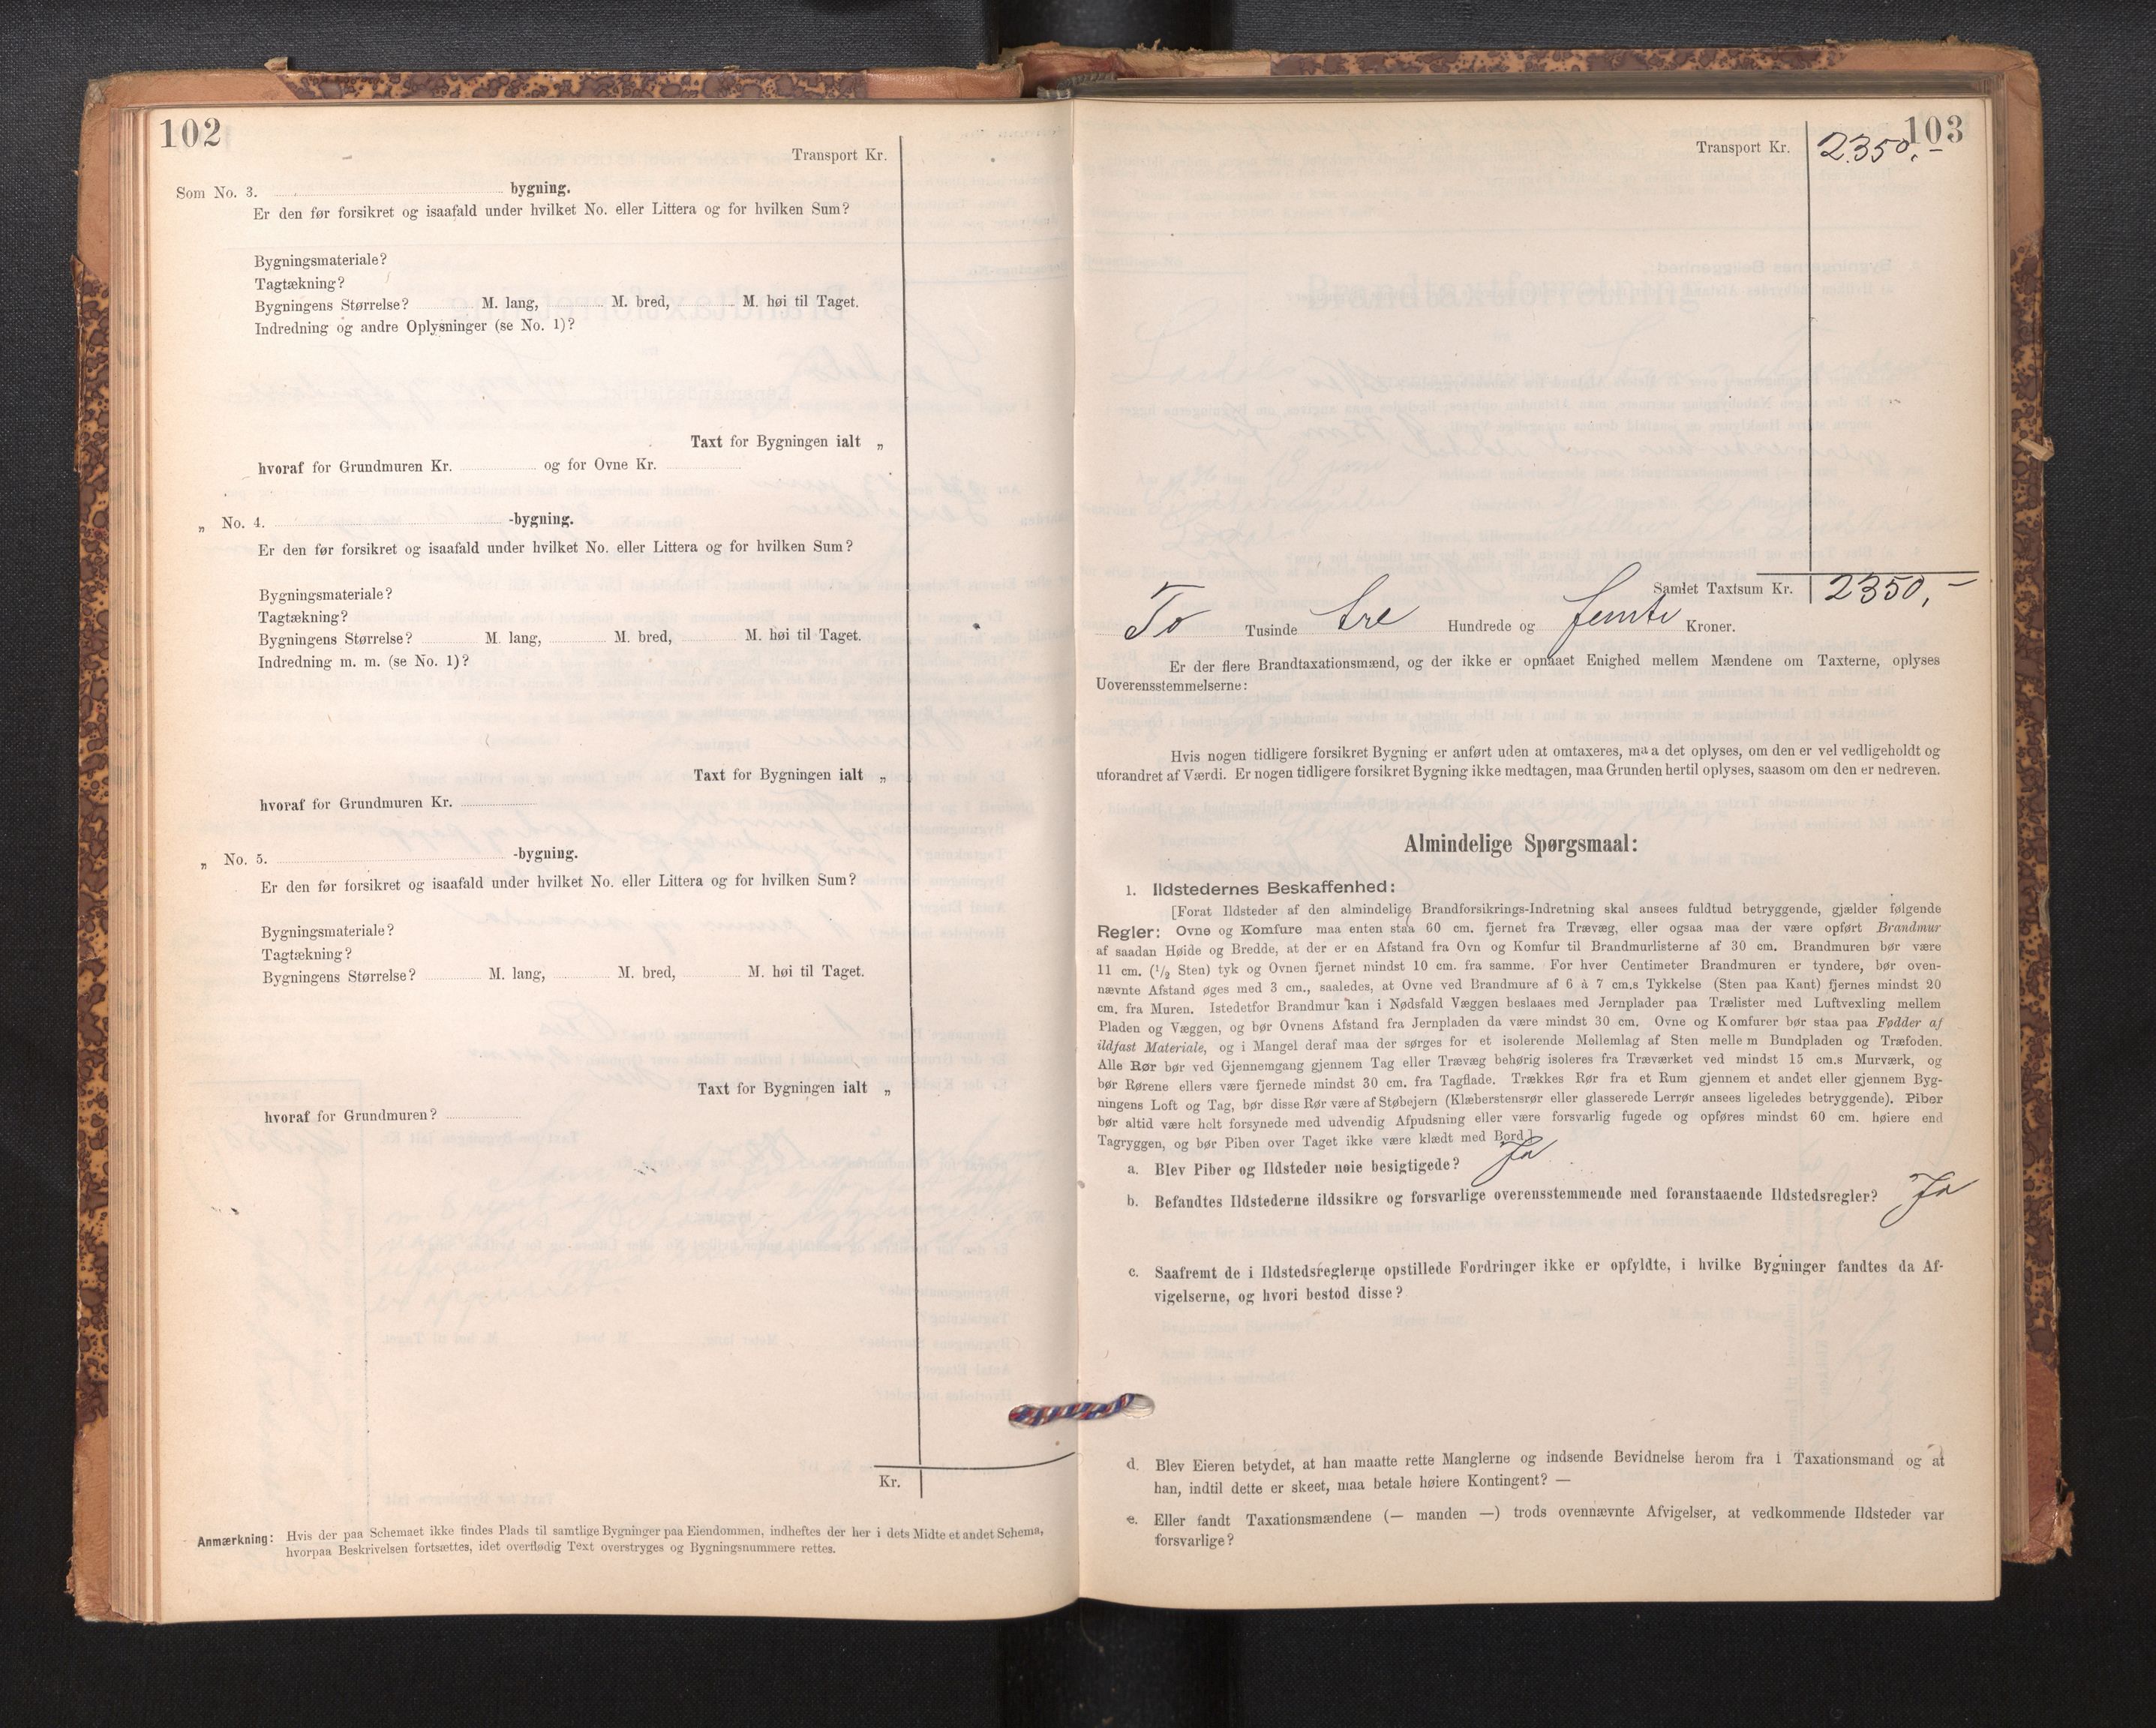 102
Transport Kr.
Som No. 3. bygning.
Er den før forsikret og isaafald under hvilket No. eller Littera og for hvilken Sum?
Bygningsmateriale?
Tagtækning?
Bygningens Størrelse? M. lang, M. bred, M. høi til Taget.
Indredning og andre Oplysninger (se No. 1)?
Taxt for Bygningen ialt „
hvoraf for Grundmuren Kr. og for Ovne Kr.
„ No. 4. -bygning.
Er den før forsikret og isaafald under hvilket No. eller Littera og for hvilken Sum?
Bygningsmateriale?
Tagtækning?
Bygningens Størrelse? M. lang, M. bred, M. høi til Taget.
Indredning m. m. (se No. 1)?
Taxt for Bygningen ialt „
hvoraf for Grundmuren Kr.
„ No. 5. -bygning.
Er den før forsikret og isaafald under hvilket No. eller Littera og for hvilken Sum?
Bygningsmateriale?
Tagtækning?
Bygningens Størrelse? M. lang, M. bred, M. høi til Taget.
Taxt for Bygningen ialt „
hvoraf for Grundmuren?
Kr.
Anmærkning: Hvis der paa Schemaet ikke findes Plads til samtlige Bygninger paa Eiendommen, indheftes der her i dets Midte et andet Schema,
hvorpaa Beskrivelsen fortsættes, idet overflødig Text overstryges og Bygningsnummere rettes.
103
Transport Kr. 2350,-
Samlet Taxtsum Kr. 2350,-
To Tusinde tre Hundrede og femti Kroner.
Er der flere Brandtaxationsmænd, og der ikke er opnaaet Enighed mellem Mændene om Taxterne, oplyses
Uoverensstemmelserne:
Hvis nogen tidligere forsikret Bygning er anført uden at omtaxeres, maa det oplyses, om den er vel vedligeholdt og
uforandret af Værdi. Er nogen tidligere forsikret Bygning ikke medtagen, maa Grunden hertil oplyses, saasom om den er nedreven.
Almindelige Spørgsmaal:
1. Ildstedernes Beskaffenhed:
[Forat Ildsteder af den almindelige Brandforsikrings-Indretning skal ansees fuldtud betryggende, gjælder følgende
Regler: Ovne og Komfure maa enten staa 60 cm. fjernet fra Trævæg, eller ogsaa maa der være opført Brandmur
af saadan Høide og Bredde, at der er en Afstand fra Ovn og Komfur til Brandmurlisterne af 30 cm. Brandmuren bør være
11 cm. (1/2 Sten) tyk og Ovnen fjernet mindst 10 cm. fra samme. For hver Centimeter Brandmuren er tyndere, bør oven-
nævnte Afstand øges med 3 cm., saaledes, at Ovne ved Brandmure af 6 à 7 cm.s Tykkelse (Sten paa Kant) fjernes mindst 20
cm. fra Muren. Istedetfor Brandmur kan i Nødsfald Væggen beslaaes med Jernplader paa Trælister med Luftvexling mellem
Pladen og Væggen, og bør Ovnens Afstand fra Jernpladen da være mindst 30 cm. Ovne og Komfurer bør staa paa Fødder af
ildfast Materiale, og i Mangel deraf maa der sørges for et isolerende Mellemlag af Sten mellem Bundpladen og Træfoden.
Alle Rør bør ved Gjennemgang gjennem Tag eller Trævæg behørig isoleres fra Træværket ved mindst 15 cm.s Murværk, og
bør Rørene ellers være fjernede mindst 30 cm. fra Tagflade. Trækkes Rør fra et Rum gjennem et andet eller gjennem Byg-
ningens Loft og Tag, bør disse Rør være af Støbejern (Klæberstensrør eller glasserede Lerrør ansees ligeledes betryggende). Piber
bør altid være helt forsynede med udvendig Afpudsning eller være forsvarlig fugede og opføres mindst 60 cm. høiere end
Tagryggen, og bør Piben over Taget ikke være klædt med Bord.]
a. Blev Piber og Ildsteder nøie besigtigede? Ja
b. Befandtes Ildstederne ildssikre og forsvarlige overensstemmende med foranstaaende Ildstedsregler? Ja
c. Saafremt de i Ildstedsreglerne opstillede Fordringer ikke er opfyldte, i hvilke Bygninger fandtes da Af-
vigelserne, og hvori bestod disse?
d. Blev Eieren betydet, at han maatte rette Manglerne og indsende Bevidnelse herom fra 1 Taxationsmand og at
han, indtil dette er skeet, maa betale høiere Kontingent? —
e. Eller fandt Taxationsmændene (— manden —) trods ovennævnte Afvigelser, at vedkommende Ildsteder var
forsvarlige?